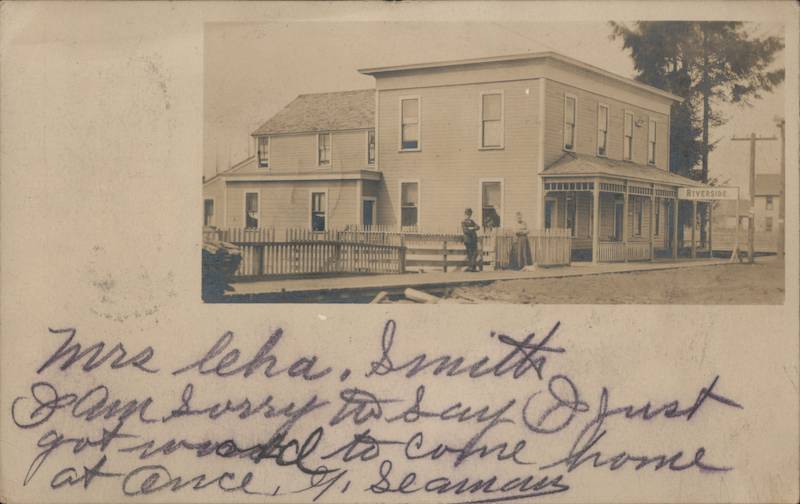 RIVERSIDE
Mrs Cha. Smith
I Am Sorry to Say I Just
got word to come home
at Once. G. Seaman